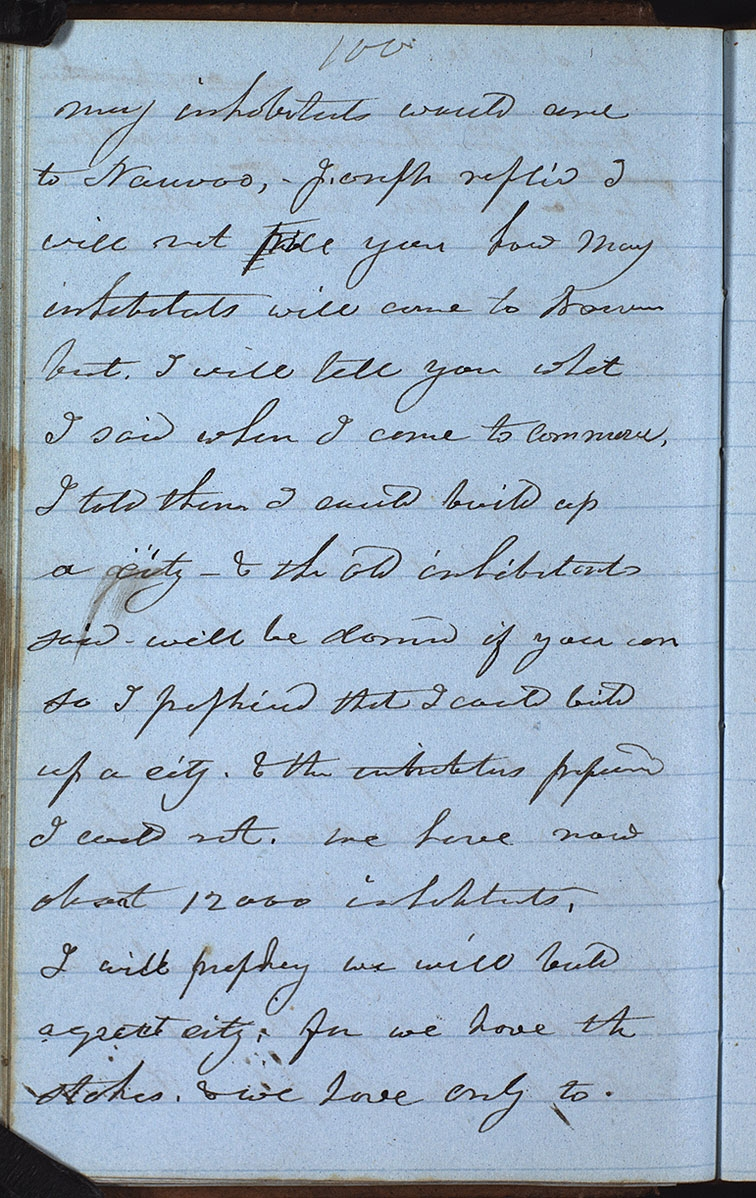 100
many inhabitants would come
to Nauvoo, - Joseph replid I
will not tell you how may
inhabitats will come to Nauvoo
but. I will tell you what
I said when I come to commerce,
I told them I could build up
a city - & the old inhibitants
said - will be damnd if you can
so I prophised that I could build
up a city. & the inhabitants prophesied
I could not. we have now
about 12000 inhabitants,
I will prophecy we will build
a great city, for we have the
stakes. & we have only to.